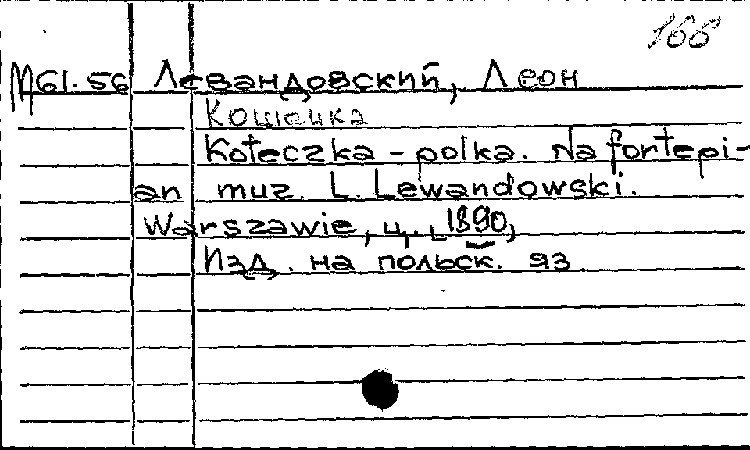 166
М61.56 Левандовский, Леон
Кошечка
Koteczka - polka. Na fortepi-
an muz. L. Lewandowski.
Warszawie, ц. 1890,
Изд. на польск. яз